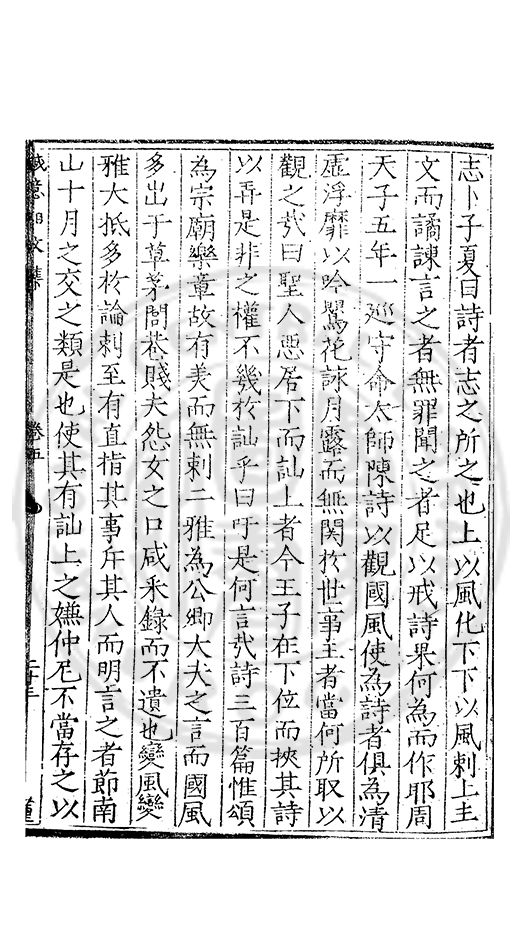 志卜子夏曰詩者志之所之也上以風化下下以風刺上主
文而譎諫言之者無罪聞之者足以戒詩果何為而作耶周
天子五年一廵守命太師陳詩以觀國風使為詩者俱為清
虛浮靡以吟鶯花詠月露而無関於世事王者當何所取以
觀之㢤曰聖人惡居下而訕上者今王子在下位而挾其詩
以弄是非之權不幾於訕乎曰吁是何言㢤詩三百篇惟頌
為宗廟樂章故有美而無刺二雅為公卿大夫之言而國風
多出于草茅閭巷賤夫怨女之口咸采錄而不遺也變風變
雅大抵多於論刺至有直指其事斥其人而明言之者節南
山十月之交之類是也使其有訕上之嫌仲尼不當存之以
誠意伯文集
卷五
二十三